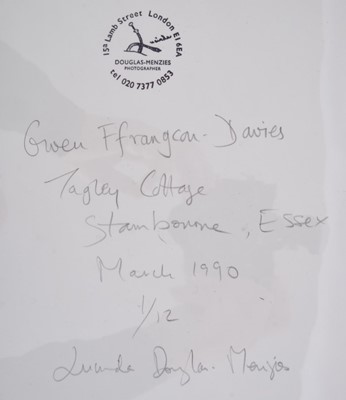 15a Lamb Street London E1 6EA
DOUGLAS-MENZIES
PHOTOGRAPHER
tel 020 7377 0853
Gwen Ffrangcon-Davies
Tagley Cottage
Stambourne, Essex
March 1990
1/12
Lucinda Douglas-Menzies